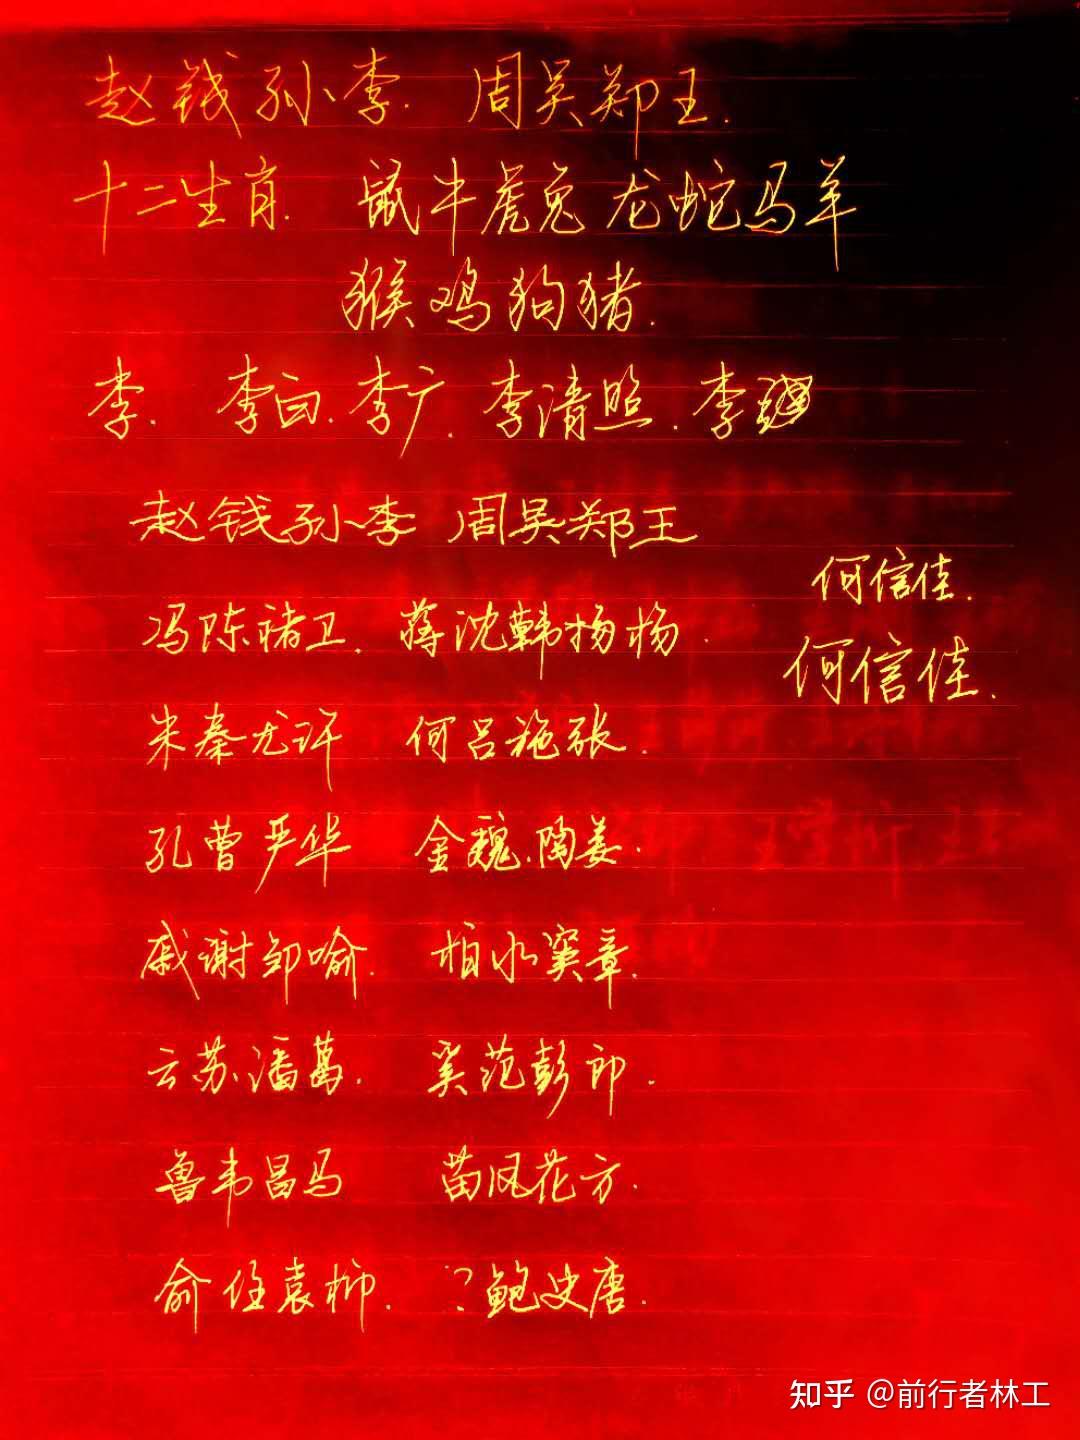 赵钱孙李. 周吴郑王.
十二生肖. 鼠牛虎兔龙蛇马羊
猴鸡狗猪.
李. 李白. 李广. 李清照. 李
赵钱孙李 周吴郑王
何信佳.
冯陈褚卫. 蒋沈韩杨杨.
何信佳.
朱秦尤许 何吕施张.
孔曹严华 金魏.陶姜.
戚谢邹喻. 柏水窦章.
云苏潘葛. 奚范彭郎.
鲁韦昌马 苗凤花方.
俞任袁柳. ?鲍史唐.
知乎 @前行者林工